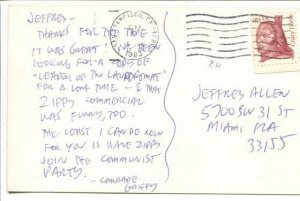 JEFFREY-
THANKS FOR THE TAPE
IT WAS GREAT. I'VE BEEN
LOOKING FOR A COPY OF
"LEADER OF THE LAUNDROMAT"
FOR A LONG TIME - & THAT
ZIPPY COMMERCIAL
WAS FUNNY, TOO.
THE LEAST I CAN DO NOW
FOR YOU IS HAVE ZIPPY
JOIN THE COMMUNIST
PARTY.
- COMRADE
GRIFFY
FRANCISCO, CA
PM
JEFFREY ALLEN
5700 SW 31 ST
MIAMI FLA
33155